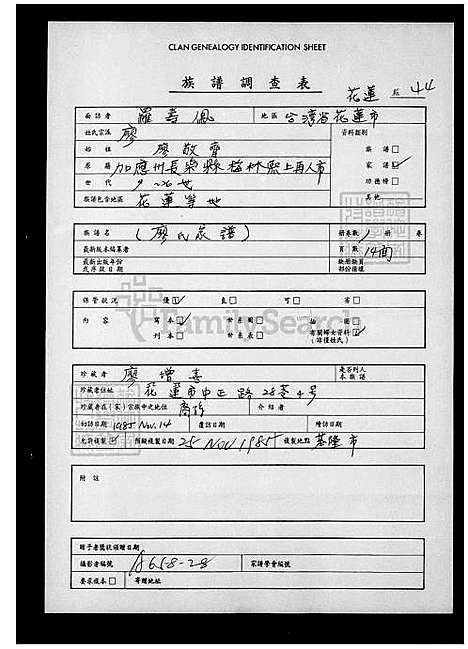 CLAN GENEALOGY IDENTIFICATION SHEET
族譜調查表
花蓮 44
面訪者 羅壽鳳 地區 台灣省花蓮市
姓氏宗派 廖 資料類別
始祖 廖敬實 族譜□
原籍 加應州長樂縣 家譜☑
世代 功德榜□
族譜包含地區 花蓮等地 其他
譜名 (廖氏族譜) 冊卷數 1 冊 卷
最新版本編纂者 頁數 14面
最新出版年份或序跋日期 缺冊缺頁部份備填
保管狀況 優☑ 良□ 可□ 劣□
內容 寫本☑ 世系圖□ 插圖□
刊本□ 世系表□ 有關婦女資料☑(非僅姓氏)
FamilySearch
珍藏者 廖增喜 是否列入本族譜
珍藏者住址 花蓮市中正路28巷4号
珍藏者在(家)宗族中之地位 裔孫 介紹者
初訪日期 1985 Nov. 14 復訪日期 增訪日期
允許複製☑ 預擬複製日期 25 NOV 1985 複製地點 基隆市
附註
贈予者獎狀頒贈日期
攝影者編號 18658-28 家譜學會編號
要求複本□ 寄贈地址